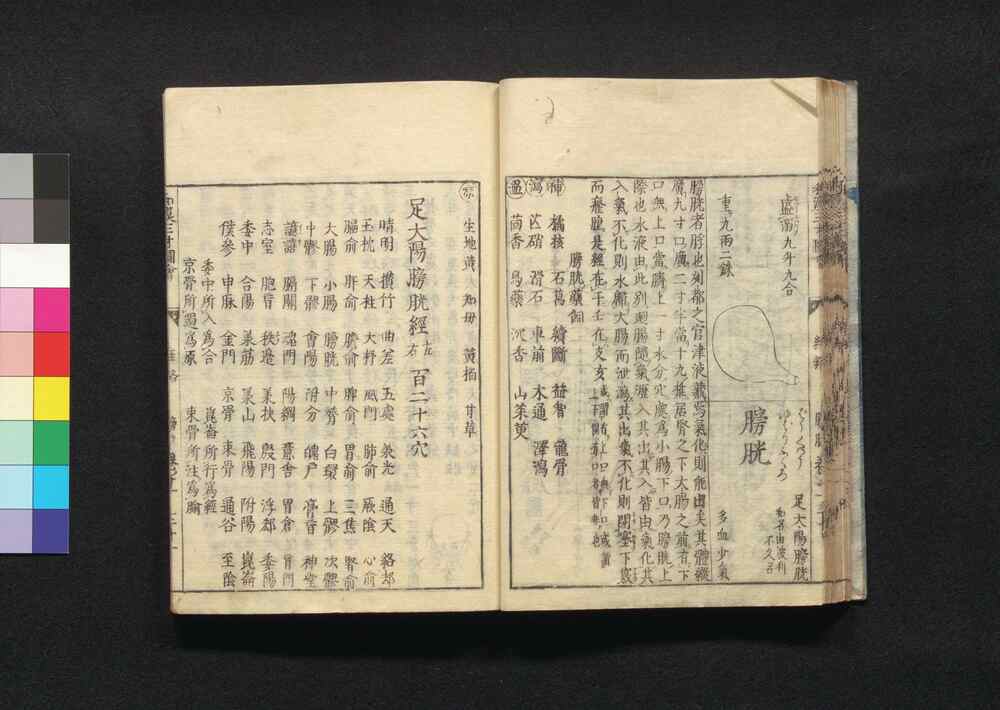 足太陽膀胱
多血少氣
膀胱
盛溺九升九合
重九兩二銖
膀胱者脬也州都之官津液藏焉氣化則能出矣其體縱
廣九寸口廣二寸半當十九椎居腎之下大腸之前有下
口無上口當臍上一寸水分穴處爲小腸下口乃膀胱上
際也水液由此別廻腸隨氣滲入其出其入皆由氣化其
入氣不化則水歸大腸而泄瀉其出氣不化則閉塞下竅
而癃腫是經在干壬在支亥
膀胱藥例
補 橘核 石葛 續斷 益智 龍骨
瀉 芒硝 滑石 車前 木通 澤瀉
溫 茴香 烏藥 沉香 山茱萸
涼 生地黄 知母 黄栢 甘草
足太陽膀胱經 左右 百二十六穴
晴明 攢竹 曲差 五處 承光 通天 絡却
玉枕 天柱 大杼 風門 肺俞 厥陰 心俞
膈俞 肝俞 膽俞 脾俞 胃俞 三焦 腎俞
大腸 小腸 膀胱 中膂 白環 上髎 次髎
中髎 下髎 會陽 附分 魄户 膏肓 神堂
譩譆 膈關 魂門 陽綱 意舍 胃倉 肓門
志室 胞肓 秩邊 承扶 殷門 浮郄 委陽
委中 合陽 承筋 承山 飛陽 附陽 崑崙
僕參 申脉 金門 京骨 束骨 通谷 至陰
委中所入爲合 崑崙所行爲經
京骨所過爲原 束骨所注爲腧